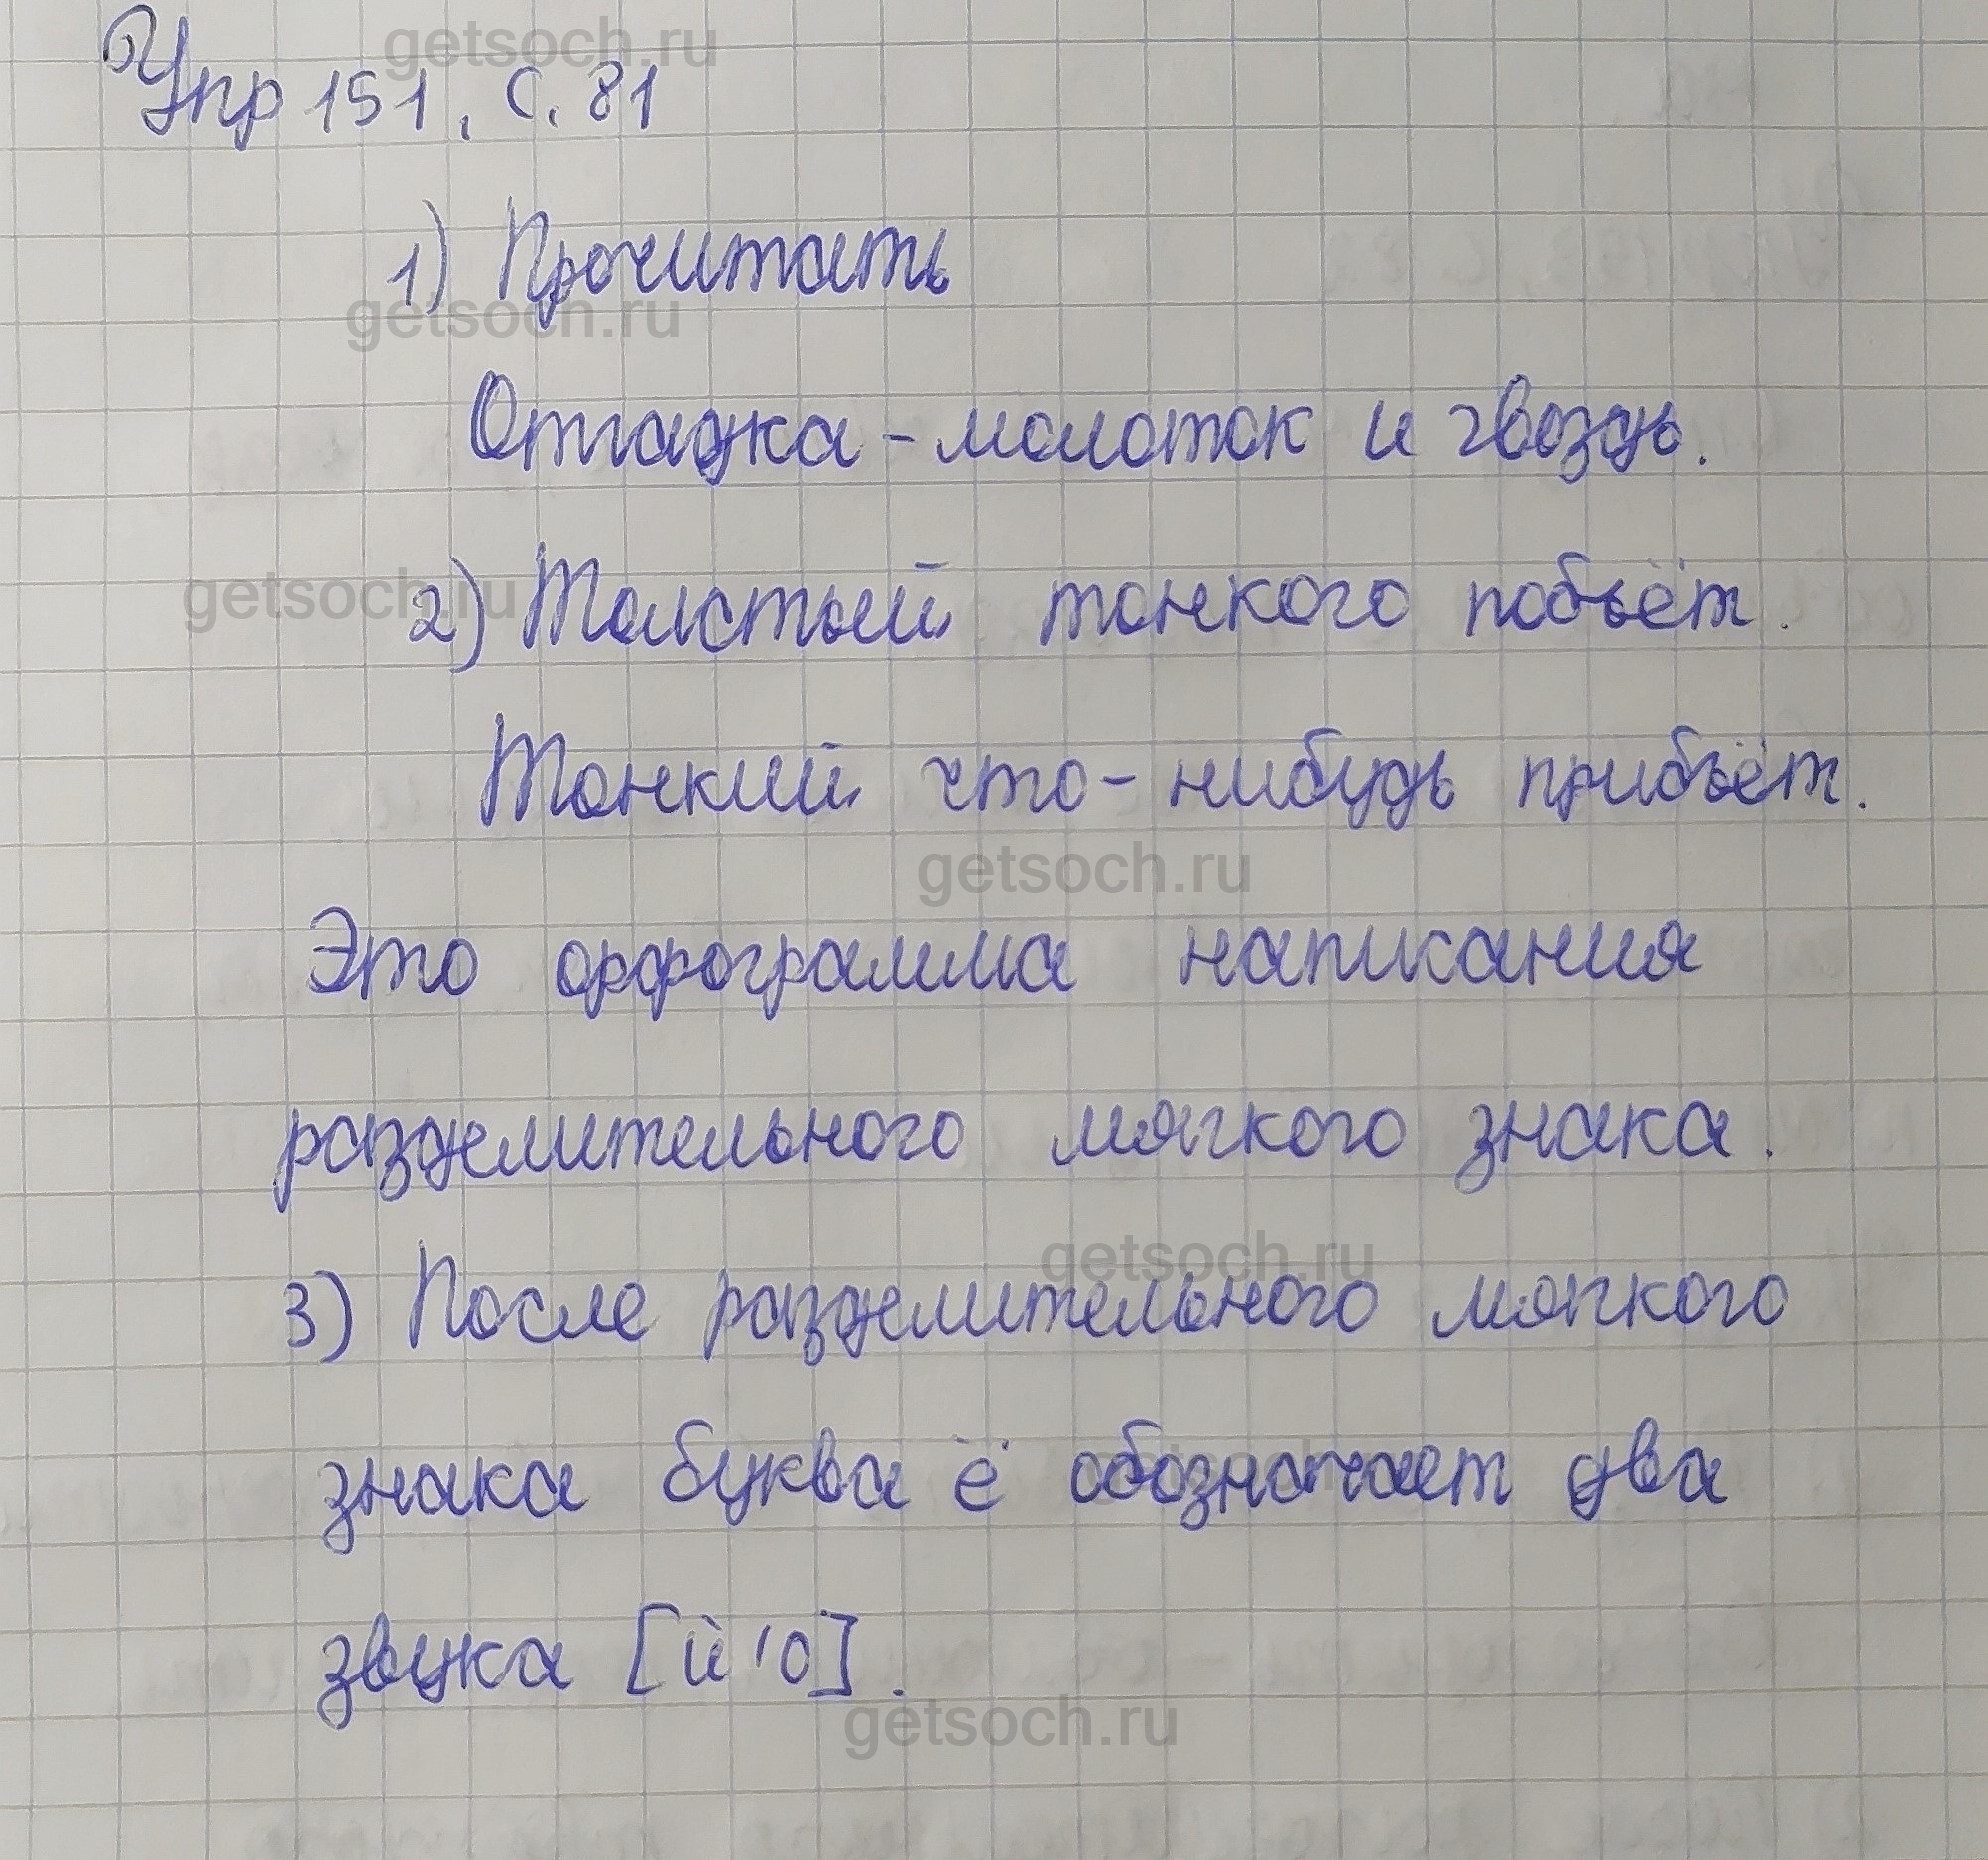 getsoch.ru
Упр 151, с. 81
1) Прочитать
getsoch.ru
Отгадка - молоток и гвоздь.
getsoch.ru
2) Толстый тонкого побьёт.
Тонкий что-нибудь прибьёт.
getsoch.ru
Это орфограмма написания
разделительного мягкого знака.
getsoch.ru
3) После разделительного мягкого
знака буква ё обозначает два
getsoch.ru
звука [й'о].
getsoch.ru